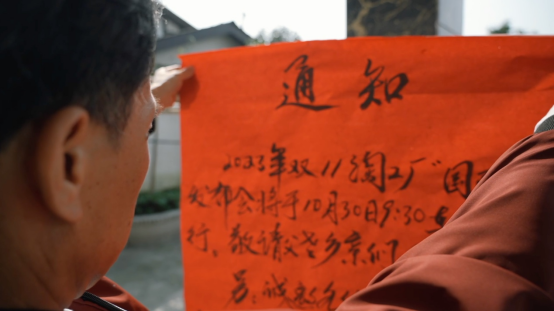 通知
2023年双11淘工厂国
都会将于10月30日9:30
行。敬请父老乡亲们